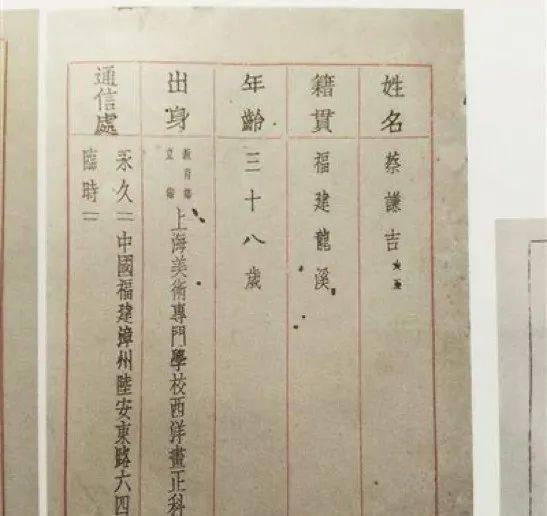 姓名 蔡謙吉
籍貫 福建龍溪
年齡 三十八歲
出身 教育部立案 上海美術專門學校西洋畫正科
通信處 永久＝中國福建漳州陸安東路六四
臨時＝